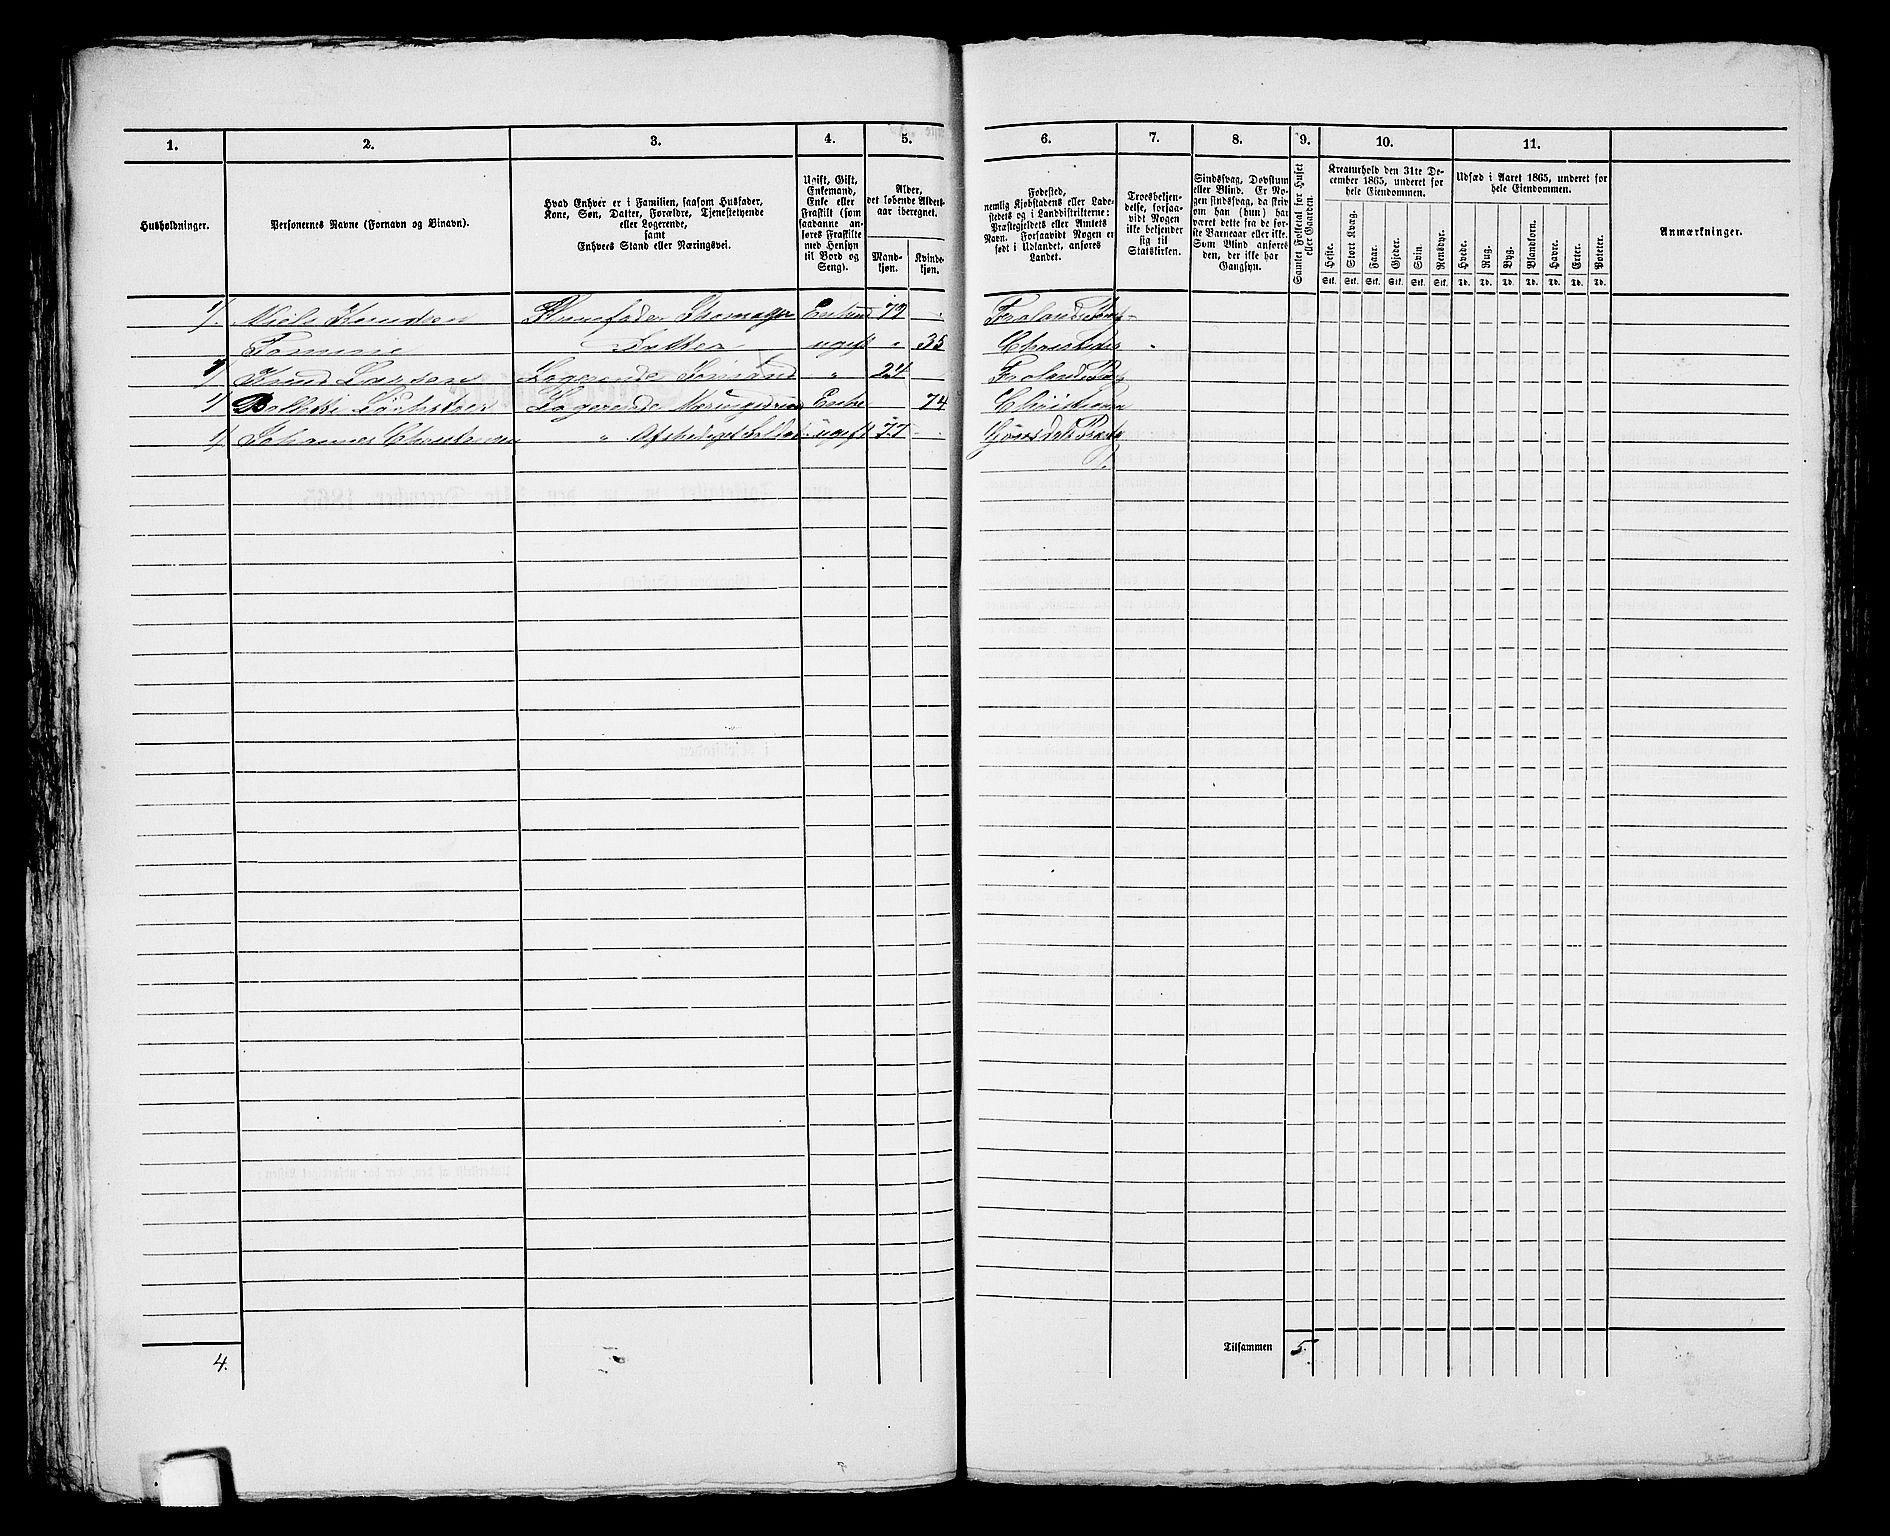 1. 2. 3. 4. 5. 6. 7. 8. 9. 10. 11.
Husholdninger.
Personernes Navne (Fornavn og Binavn).
Hvad Enhver er i Familien, saasom Husfader,
Kone, Søn, Datter, Forældre, Tjenestetyende
eller Logerende,
samt
Enhvers Stand eller Næringsvei.
Ugift, Gift,
Enkemand,
Enke eller
Fraskilt (som
saadanne an-
føres Fraskilte
med Hensyn
til Bord og
Seng).
Alder,
det løbende Alders-
aar iberegnet.
Mand-
kjøn.
Kvinde-
kjøn.
Fødested,
nemlig Kjøbstadens eller Lade-
stedets og i Landdistrikterne:
Præstegjeldets eller Amtets
Navn. Forsaavidt Nogen er
født i Udlandet, anføres
Landet.
Troesbekjen-
delse, forsaa-
vidt Nogen
ikke bekjender
sig til
Statskirken.
Sindssvag, Døvstum
eller Blind. Er No-
gen sindssvag, da skriv
om han (hun) har
været dette fra de før-
ste Barneaar eller ikke.
Som Blind anføres
den, der ikke har
Gangsyn.
Samlet Folketal for Huset
eller Gaarden.
Kreaturhold den 31te De-
cember 1865, underet for
hele Eiendommen.
Heste. Stort Kvæg. Faar. Gjeder. Svin. Rensdyr.
Stk. Stk. Stk. Stk. Stk. Stk.
Udsæd i Aaret 1865, underet for
hele Eiendommen.
Hvede. Rug. Byg. Blandkorn. Havre. Erter. Poteter.
Td. Td. Td. Td. Td. Td. Td.
Anmærkninger.
1/. Niels Knudsen 73
Datter ugift " 35
Knud Larsen Logerende Sømand " 24
1/ Logerende Enke 74
1/ Johannes Christensen " ugift 77
4.
Tilsammen 5.